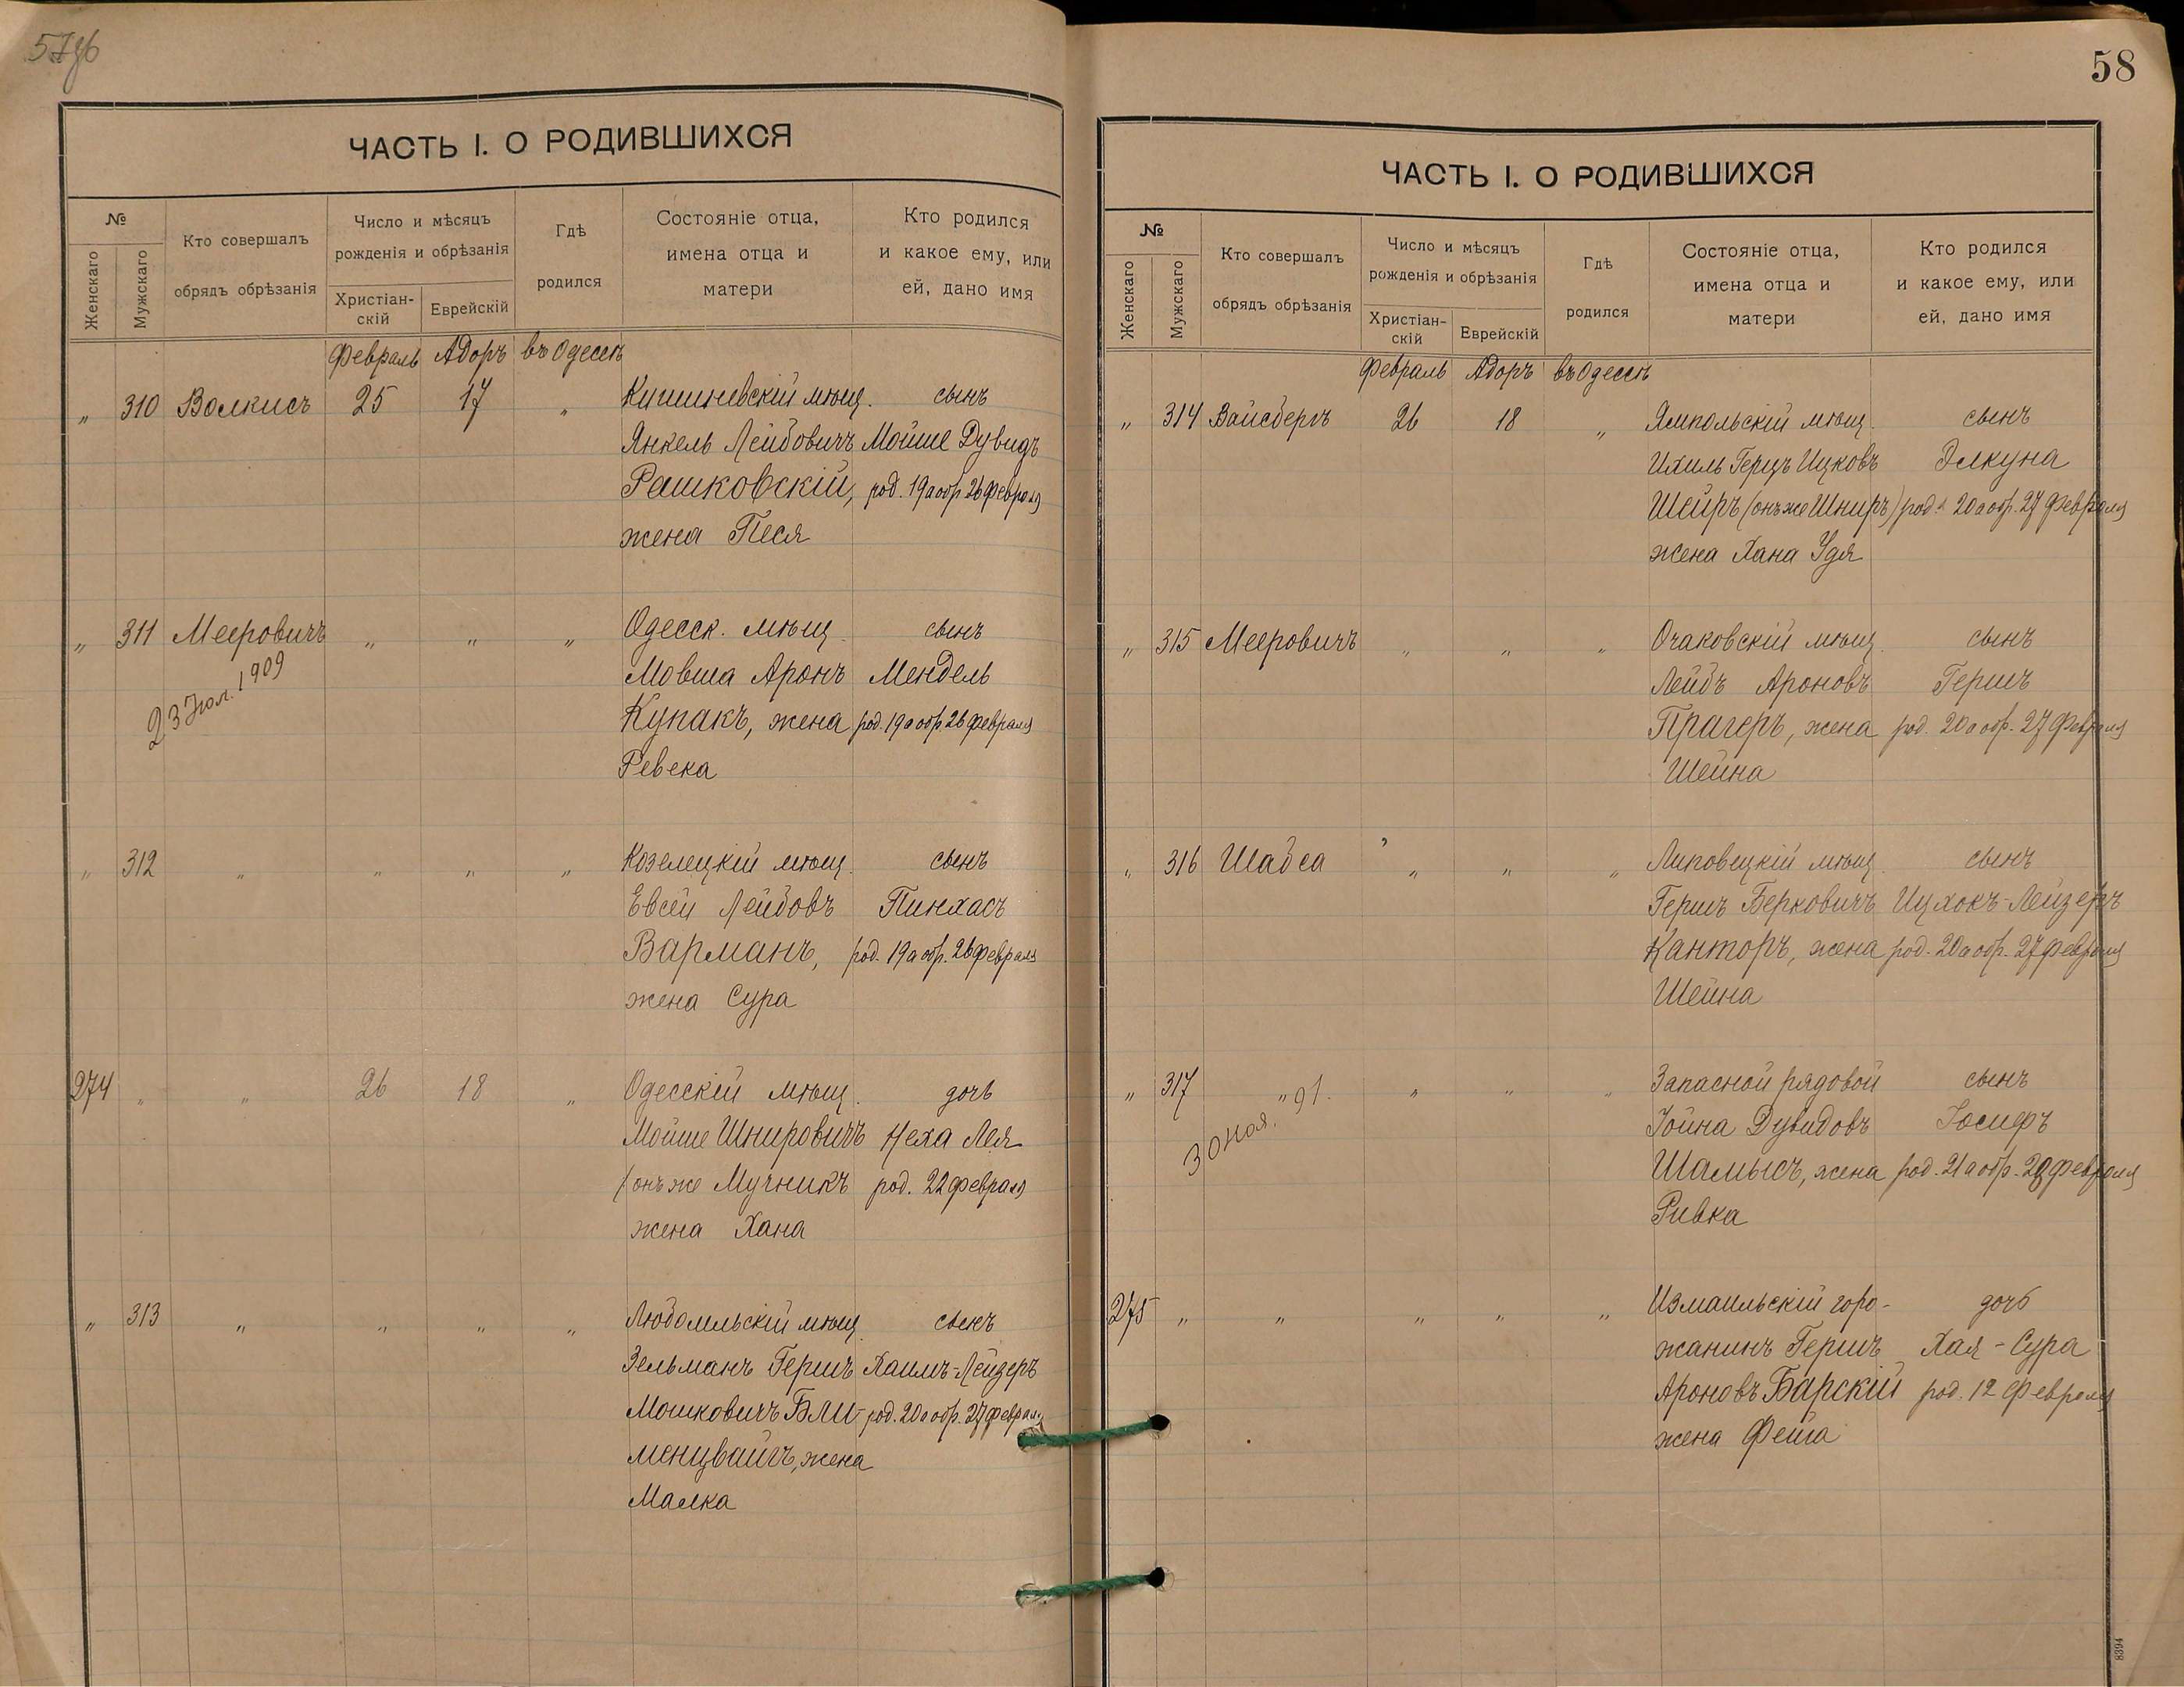 57об
ЧАСТЬ I. О РОДИВШИХСЯ
№
Женскаго
Мужскаго
Кто совершалъ
обрядъ обрѣзанія
Число и мѣсяцъ
рожденія и обрѣзанія
Христіан-
скій
Еврейскій
Гдѣ
родился
Состояніе отца,
имена отца и
матери
Кто родился
и какое ему, или
ей, дано имя
Февраль Адоръ въ Одессѣ
„ 310 Волкисъ 25 17 „ Кишиневскій мѣщ. сынъ
Янкель Лейбовичъ Мойше Дувидъ
Рашковскій, род. 19 а обр. 26 февраля
жена Песя
„ 311 Мееровичъ „ „ „ Одесск. мѣщ. сынъ
23 Іюл. 1909
Мовша Аронъ Мендель
Купакъ, жена род. 19 а обр. 26 февраля
Ревека
„ 312 „ „ „ „ Козелецкій мѣщ. сынъ
Евсей Лейбовъ Пинхасъ
Варманъ, род. 19 а обр. 26 февраля
жена Сура
274 „ „ 26 18 „ Одесскій мѣщ. дочь
Мойше Шнировичъ Неха Лея
(онъ же Мучникъ род. 22 февраля
жена Хана
„ 313 „ „ „ „ Любомльскій мѣщ. сынъ
Зельманъ Гершъ Хаимъ-Лейзеръ
Мошковичъ Бли- род. 20 а обр. 27 февраля
менцвайгъ, жена
Малка
58
ЧАСТЬ I. О РОДИВШИХСЯ
№
Женскаго
Мужскаго
Кто совершалъ
обрядъ обрѣзанія
Число и мѣсяцъ
рожденія и обрѣзанія
Христіан-
скій
Еврейскій
Гдѣ
родился
Состояніе отца,
имена отца и
матери
Кто родился
и какое ему, или
ей, дано имя
Февраль Адоръ въ Одессѣ
„ 314 Вайсбергъ 26 18 „ Ямпольскій мѣщ. сынъ
Ихиль Герцъ Ицковъ Элкуна
Шейръ (онъ же Шниръ) род. 20 а обр. 27 февраля
жена Хана Удя
„ 315 Мееровичъ „ „ „ Очаковскій мѣщ. сынъ
Лейбъ Ароновъ Гершъ
Прагеръ, жена род. 20 а обр. 27 февраля
Шейна
„ 316 Шабса „ „ „ Липовецкій мѣщ. сынъ
Гершъ Берковичъ Ицхокъ-Лейзеръ
Канторъ, жена род. 20 а обр. 27 февраля
Шейна
„ 317 „ 91. „ „ „ Запасной рядовой сынъ
30 ноя.
Іойна Дувидовъ Іосифъ
Шамысъ, жена род. 21 а обр. 28 февраля
Ривка
275 „ „ „ „ „ Измаильскій горо- дочь
жанинъ Гершъ Хая-Сура
Ароновъ Барскій род. 12 февраля
жена Фейга
8394